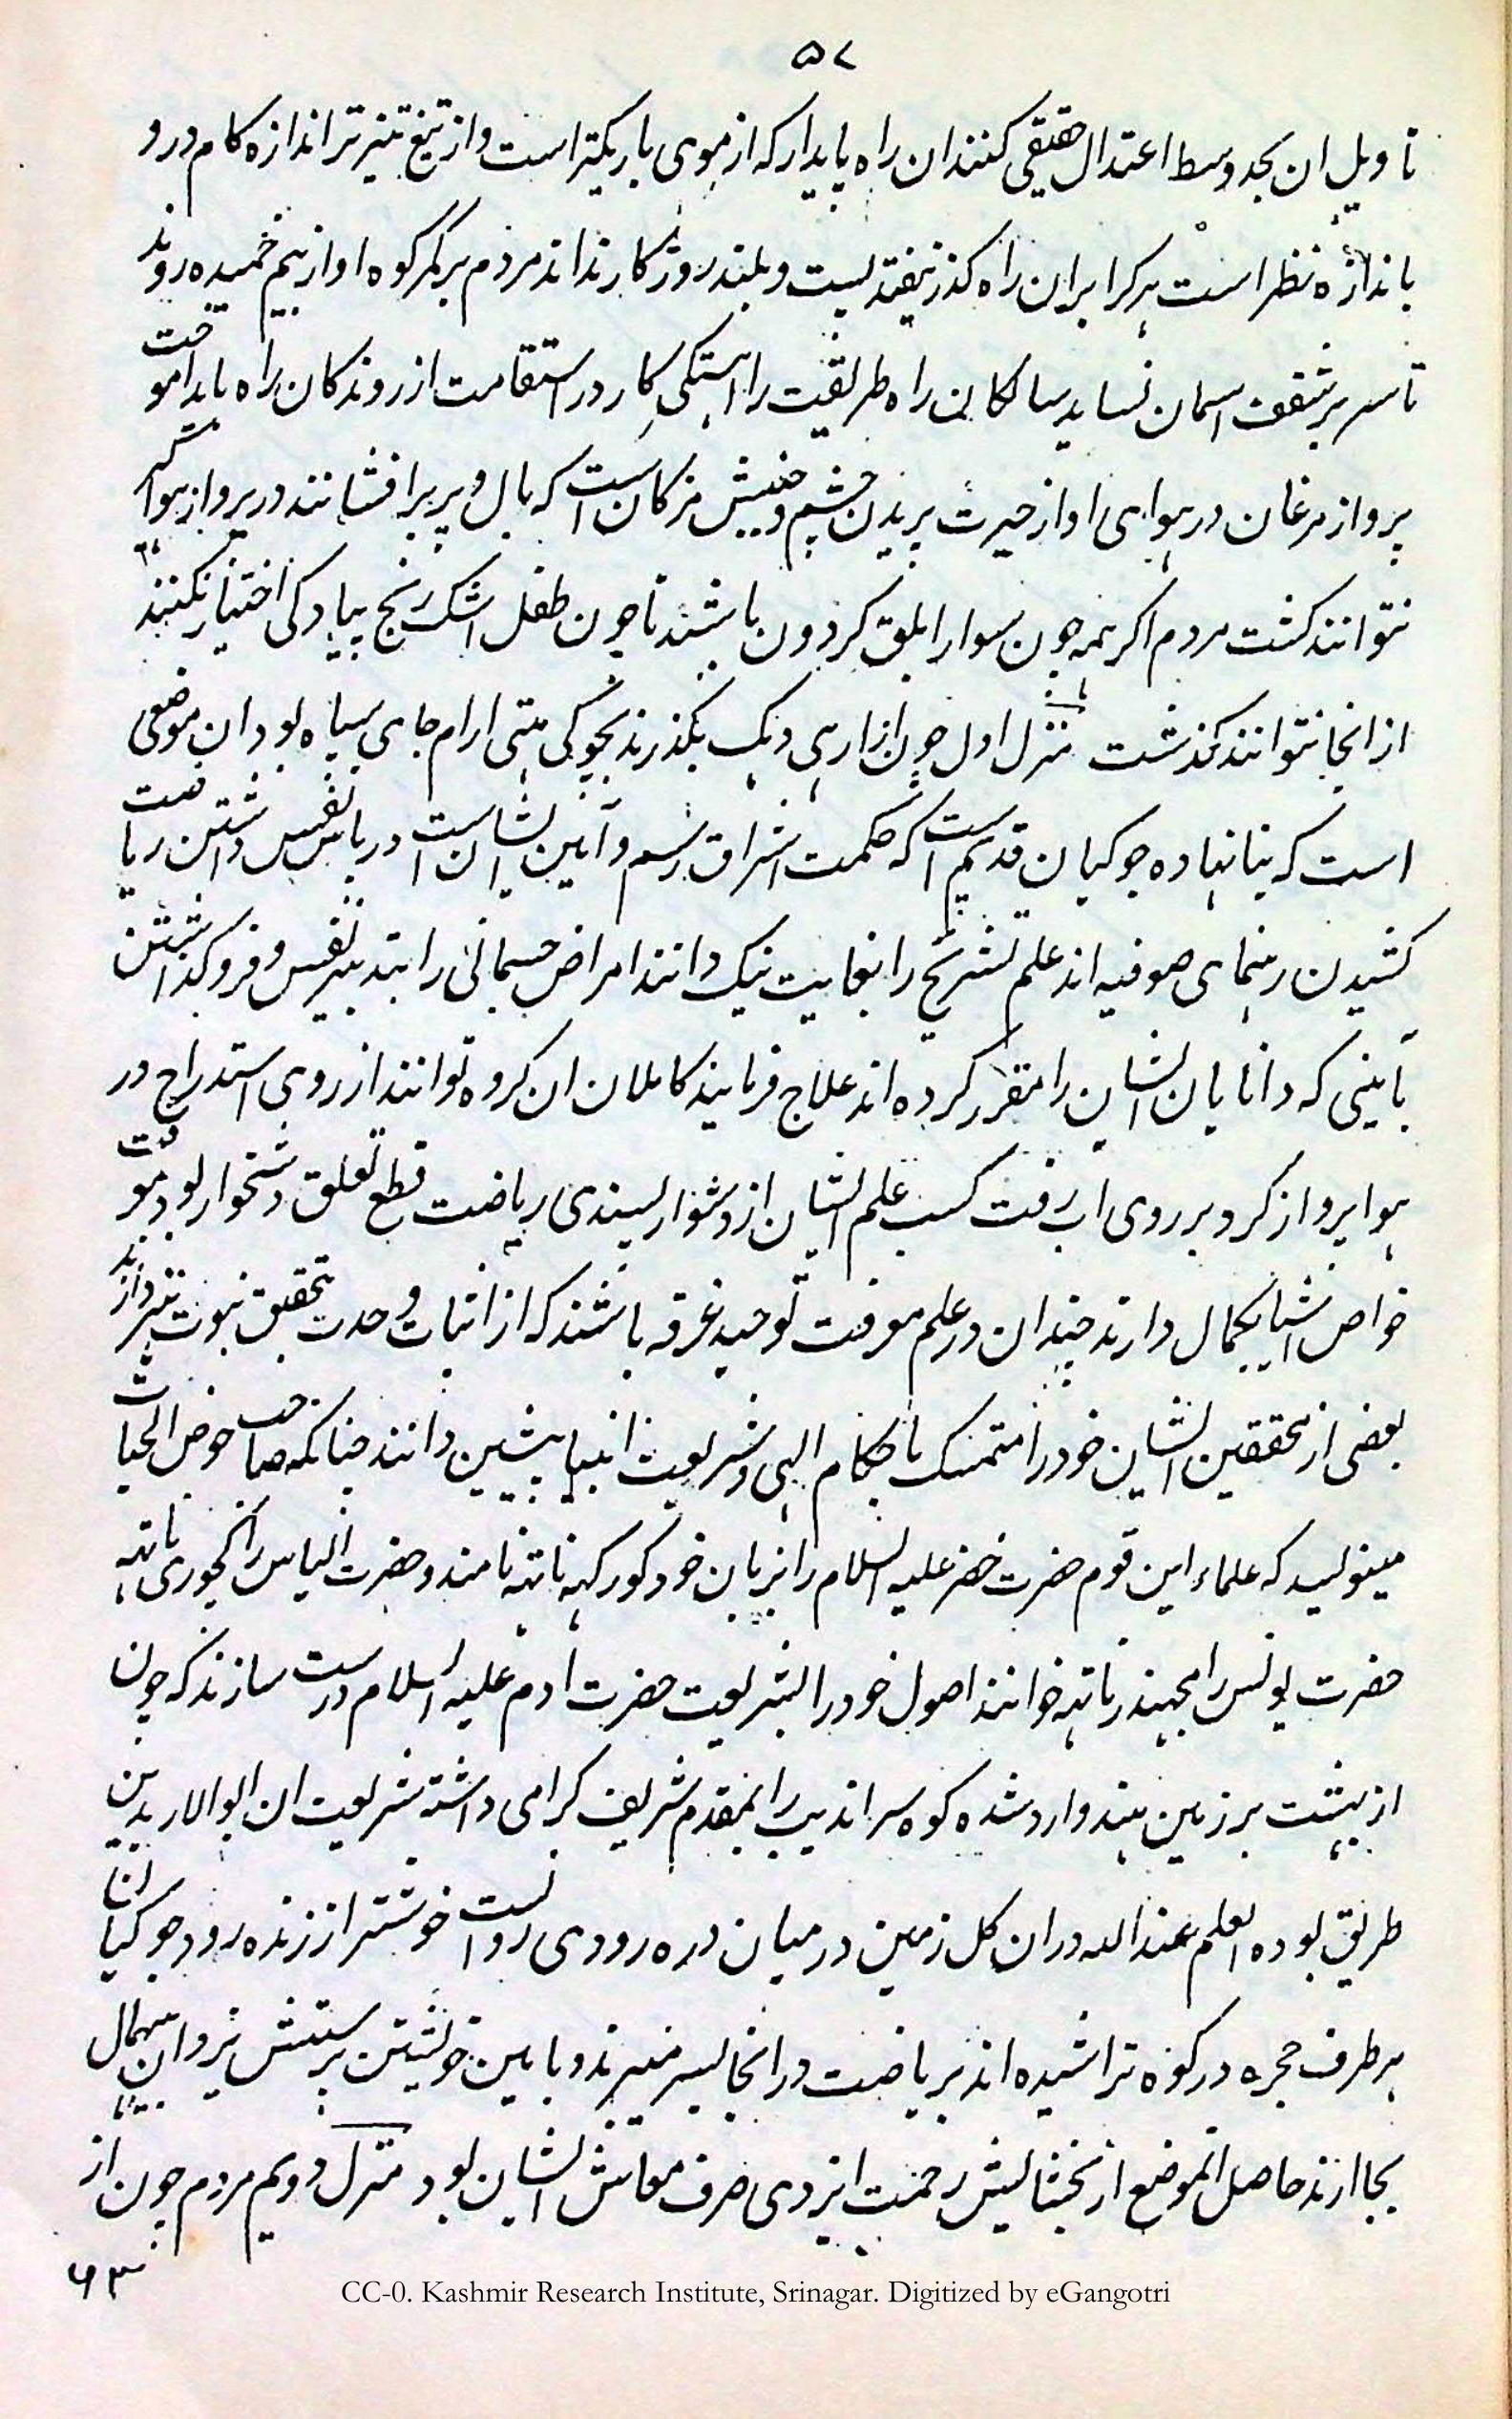 ۵۷
تاویل ان بحد وسط اعتدال حقیقی کنند ان راه پایدار که از موی باریکتر است و از تیغ تیزتر اندازه کام در و
بانداژه نظر است هرکرا بر ان راه کذر نیفتد پست و بلند روزکار نداند مردم بر کمر کوه او از بیم خمیده روند
تا سر بر سقف اسمان نساید سالکان راه طریقت را اهستکی کار در استقامت از روندکان راه باید اموخت
پرواز مرغان در هوای او از حیرت پریدن چشم و جنبش مزکان است که بال و پر بر افشانند در پرواز هوا
نتوانند کشت مردم اکر همه چون سوار ابلق کردون باشند تا چون طفل اشک رنج پیادکی اختیار نکنند
از انجا نتوانند کذشت منزل اول چون از بکذرند بجوکی ارام جای سیاه بود ان موضعی
است که بنا نهاده جوکیان قدیم است که حکمت اشراق رسم و آیین ایشان است در پاس نفس داشتن ریاضت
کشیدن رهنمای صوفیه اند علم تشریح را بغایت نیک دانند امراض جسمانی را بتدبیر نفس و فرو کذاشتن
بآیینی که دانایان ایشان را مقرر کرده اند علاج فرمایند کاملان ان کروه توانند از روی استدراج در
هوا پرواز کرد و بر روی اب رفت کسب علم ایشان از دشوار پسندی ریاضت قطع تعلق دشخوار بود معرفت
خواص اشیا بکمال دارند چندان در علم معرفت توحید غرقه باشند که از اثبات وحدت بتحقیق نبوت نپردازند
بعضی از محققین ایشان خود را متمسک باحکام الهی و شریعت انبیا پیشین دانند چنانکه صاحب حوض الحیات
مینویسد که علماء این قوم حضرت خضر علیه السلام را بزبان خود کورکهه ناتهه نامند و حضرت الیاس را چورنکی ناتهه
حضرت یونس را مچهندر ناتهه خوانند اصول خود را بشریعت حضرت ادم علیه السلام درست سازند که چون
از بهشت بر زمین هند وارد شده کوه سراندیب را بمقدم شریف کرامی داشته شریعت ان ابو الابا بدین
طریق بوده العلم عند الله در ان کل زمین در میان دره رودی رو انست خوشتر از زنده رود جوکیان انجا
هر طرف حجره در کوه تراشیده اند بریاضت در انجا بسر میبرند و بایین خویشتن پرستش یزدان بیهمال
بجا ارند حاصل انموضع از بخشایش رحمت ایزدی صرف معاش ایشان بود منزل دویم مردم چون از
۶۳
CC-0. Kashmir Research Institute, Srinagar. Digitized by eGangotri